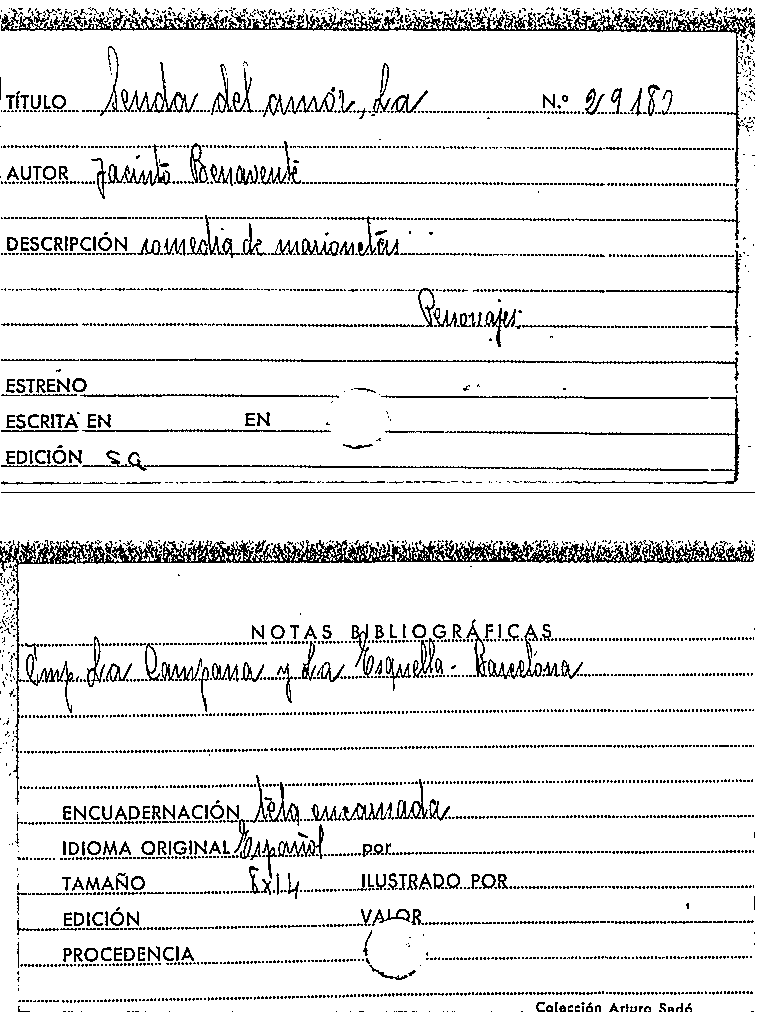 TÍTULO Senda del amor, La N.º 29180
AUTOR Jacinto Benavente
DESCRIPCIÓN comedia de marionetas
Personajes:
ESTRENO
ESCRITA EN EN
EDICIÓN s.a
NOTAS BIBLIOGRÁFICAS
Imp. La Campana y La Esquella - Barcelona
ENCUADERNACIÓN tela encarnada
IDIOMA ORIGINAL Español por
TAMAÑO 8x14 ILUSTRADO POR
EDICIÓN VALOR
PROCEDENCIA
Colección Arturo Sedó